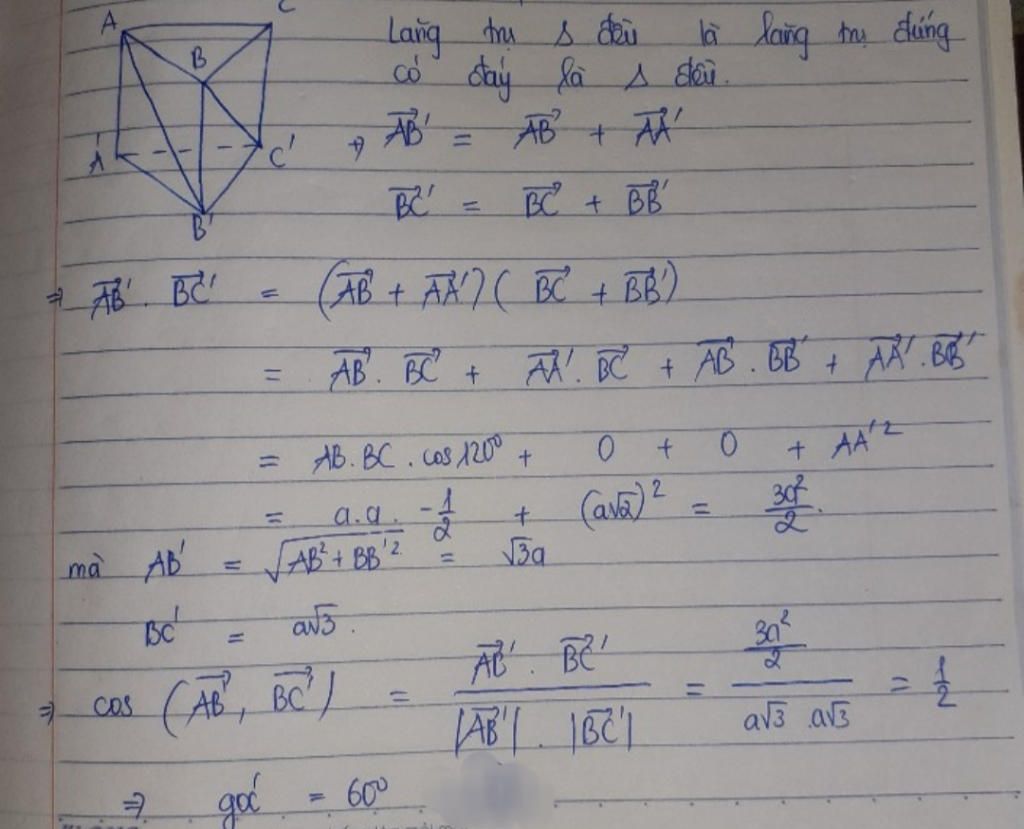 A
C
B
A'
C'
B'
Lăng trụ Δ đều là lăng trụ đứng
có đáy là Δ đều.
⇒ \overrightarrow{AB'} = \overrightarrow{AB} + \overrightarrow{AA'}
\overrightarrow{BC'} = \overrightarrow{BC} + \overrightarrow{BB'}
⇒ \overrightarrow{AB'} . \overrightarrow{BC'} = (\overrightarrow{AB} + \overrightarrow{AA'}) ( \overrightarrow{BC} + \overrightarrow{BB'})
= \overrightarrow{AB} . \overrightarrow{BC} + \overrightarrow{AA'} . \overrightarrow{BC} + \overrightarrow{AB} . \overrightarrow{BB'} + \overrightarrow{AA'} . \overrightarrow{BB'}
= AB.BC.cos120° + 0 + 0 + AA'^2
= a.a. -\frac{1}{2} + (a√2)^2 = \frac{3a^2}{2}.
mà AB' = \sqrt{AB^2 + BB'^2} = √3a
BC' = a√3.
⇒ cos (\overrightarrow{AB'}, \overrightarrow{BC'}) = \frac{\overrightarrow{AB'} . \overrightarrow{BC'}}{|\overrightarrow{AB'}| . |\overrightarrow{BC'}|} = \frac{\frac{3a^2}{2}}{a√3 . a√3} = \frac{1}{2}
⇒ góc = 60°